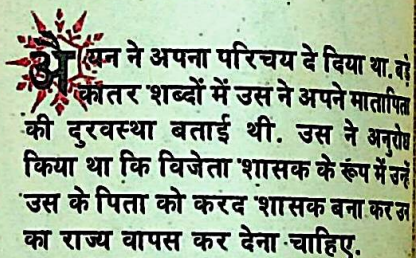 अैयन ने अपना परिचय दे दिया था. बड़े
कातर शब्दों में उस ने अपने मातापिता
की दुरवस्था बताई थी. उस ने अनुरोध
किया था कि विजेता शासक के रूप में उन्हें
उस के पिता को करद शासक बना कर उस
का राज्य वापस कर देना चाहिए.